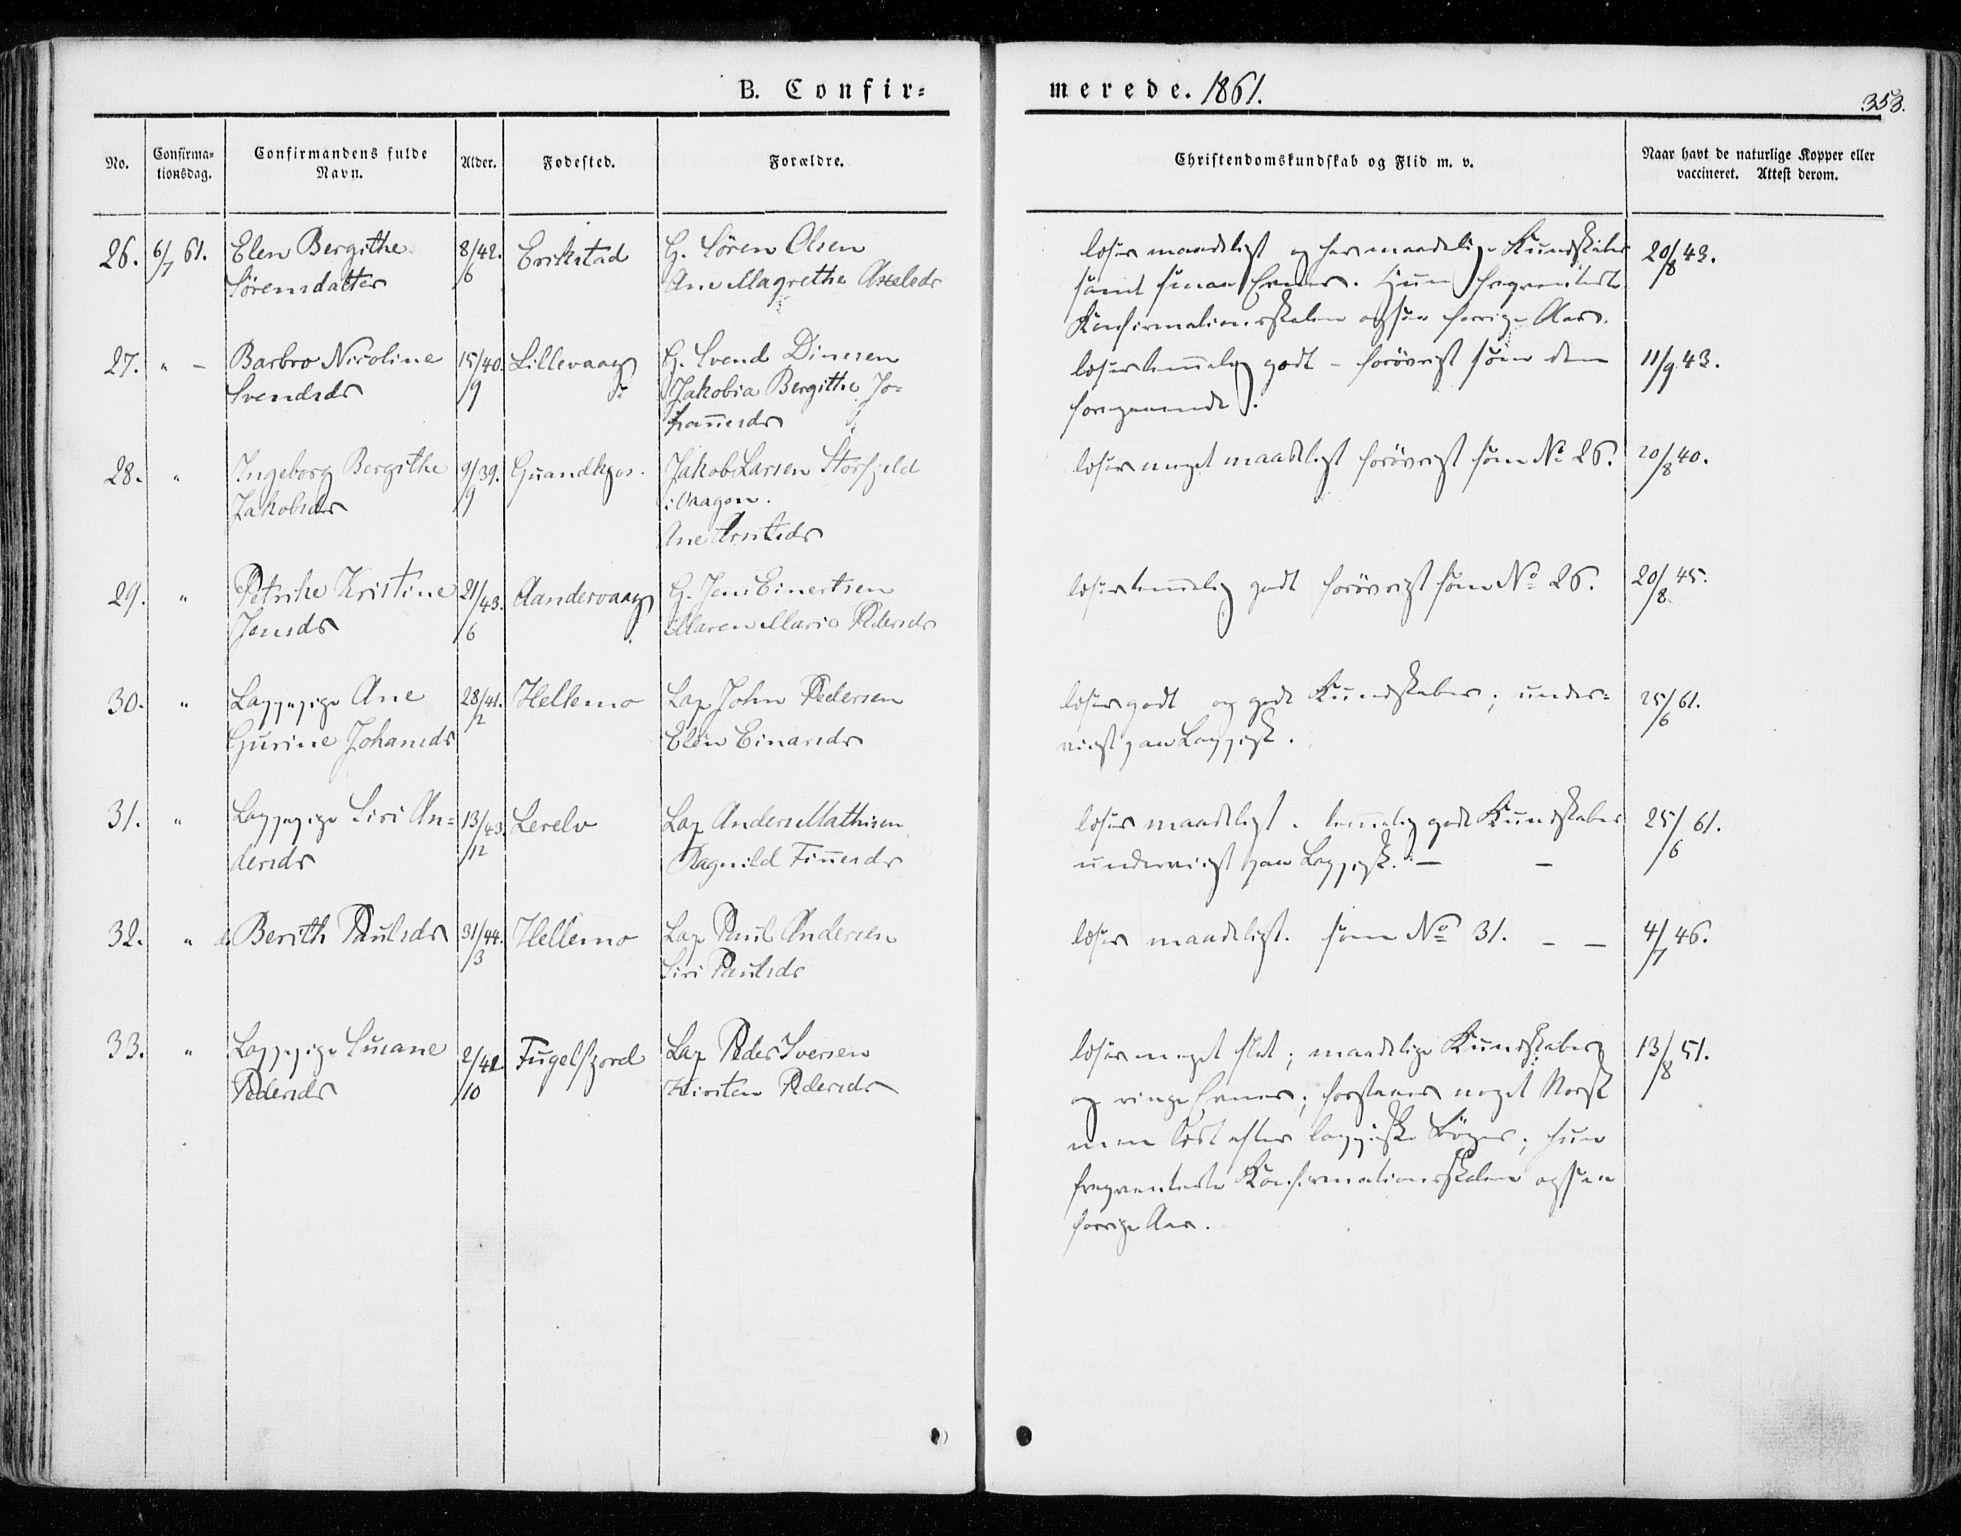 B. Confir=
merede. 1861.
353.
No.
Confirma=
tionsdag.
Confirmandens fulde
Navn.
Alder.
Fødested.
Forældre.
Christendomskundskab og Flid m. v.
Naar havt de naturlige Kopper eller
vaccineret. Attest derom.
26. 6/7 61. Elen Bergithe 8/42. Erikstad G. Sören Olsen læser maadeligt og har maadelige Kundskaber 20/8 43.
Sörensdatter /6 Ane Magrethe Axelsdr samt smaa Evner. Hun frequenterte
Konfirmationsskolen ogsaa forrige Aar.
27. " – Barbro Nicoline 15/40. Lillevaag G. Svend Dinesen læser temmelig godt – forövrigt som den 11/9 43.
Svendsdr /9 Jakobia Bergithe Jo=
foregaaende.
hannesdr
28. " Ingeborg Bergithe 9/39. Jakob Larsen Storfjeld læser meget maadeligt forövrigt som No 26. 20/8 40.
Jakobsdr /9 i Vaagen.
Ane Arntsdr
29. " Petrike Kristine 21/43. Aandervaag G. Jens Einertsen læser temmelig godt forövrigt som No 26. 20/8 45.
Jensdr /6 Maren Marie Pedersdr
30. " Lappepige Ane 28/41. Hellemo Lap John Pedersen læser godt og gode Kundskaber; under= 25/6 61.
Gurine Johansdr /2 Elen Einarsdr viist paa Lappisk.
31. " Lappepige Siri An= 13/43. Lerelv Lap Anders Mathisen læser maadeligt. temmelig gode Kundskaber 25/6 61.
dersdr /12 Ragnild Finnesdr underviist paa Lappisk. – –
32. " do Berith Paulsdr 31/44. Hellemo Lap Paul Andersen læser maadeligt. som No 31. – – 4/7 46.
/3 Siri Paulsdr
33. " Lappepige Susane 2/42. Fugelfjord Lap Peder Iversen læser meget slet; maadelige Kundskaber 13/8 51.
Pedersdr /10 Kirsten Pedersdr og ringe Evner; forstaaer noget Norsk
men læst efter lappiske Böger; hun
frequenterte Konfirmationsskolen ogsaa
forrige Aar.